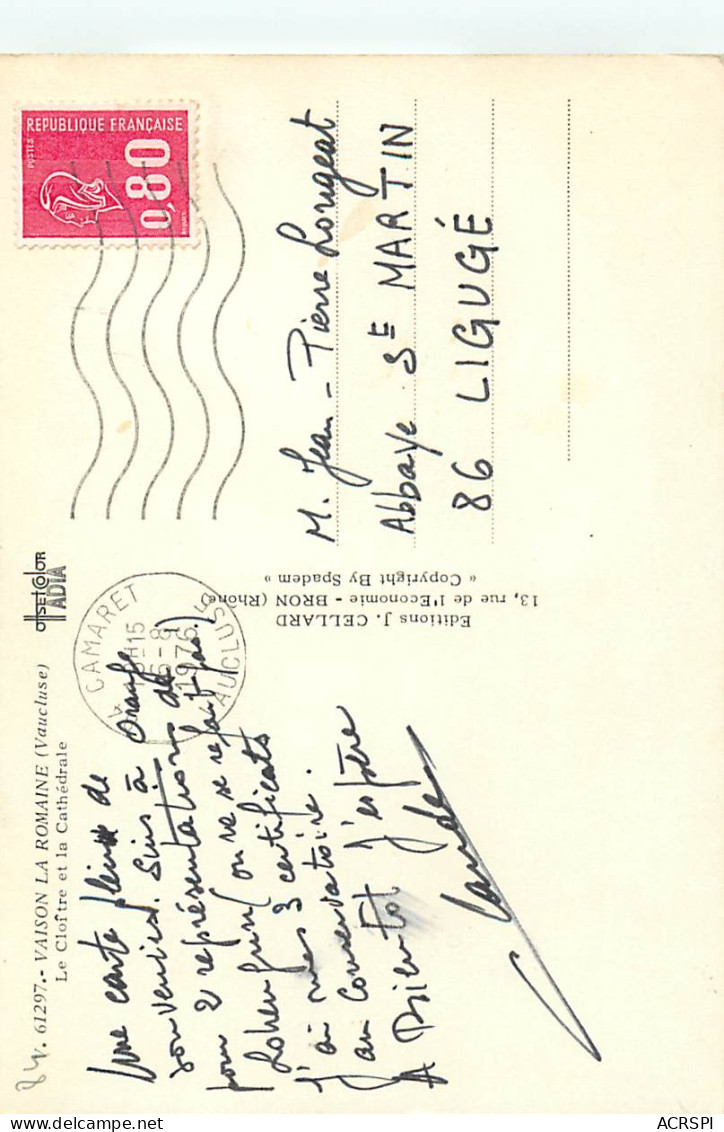 84. 61297. - VAISON LA ROMAINE (Vaucluse)
Le Cloître et la Cathédrale
OFFSET COLOR
ADIA
Une carte pleine de
souvenirs. Suis à Orange
pour 2 représentations de
Lohengrin (on ne se refait pas.)
J'ai mes 3 certificats
au Conservatoire.
A Bientôt j'espère
Claude
CAMARET
15
6-8
1976
VAUCLUSE
Editions J. CELLARD
13, rue de l'Economie - BRON (Rhône)
« Copyright By Spadem »
REPUBLIQUE FRANÇAISE
POSTES
0,80
M. Jean-Pierre Longeat
Abbaye St MARTIN
86 LIGUGÉ
ACRSPI